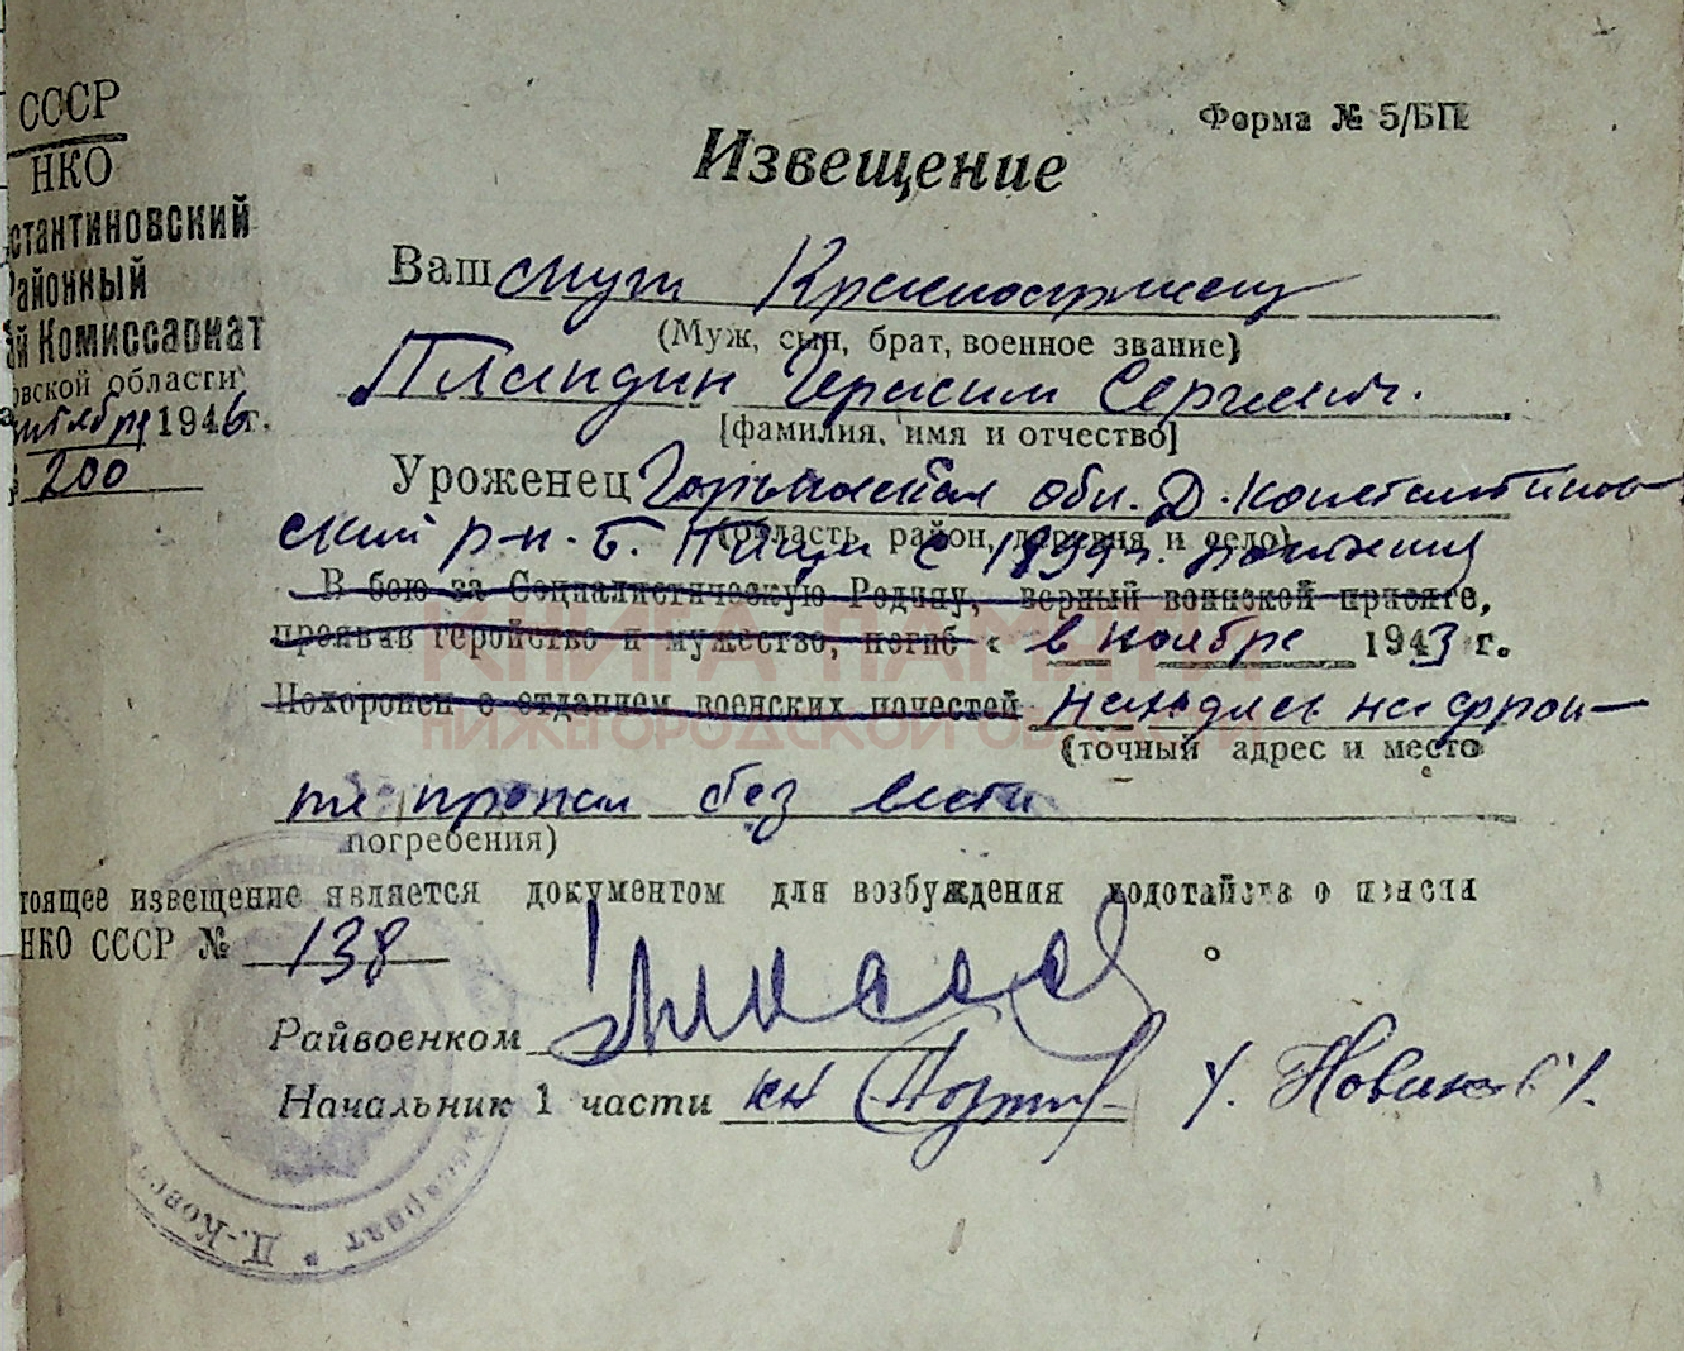 СССР
НКО
стантиновский
Районный
ий Комиссариат
овской области
октября 1946 г.
200
Форма № 5/БП
Извещение
Ваш муж Красноармеец
(Муж, сын, брат, военное звание)
Пландин Герасим Сергеевич.
[фамилия, имя и отчество]
Уроженец Горьковская обл. Д. Константинов-
(область, район, деревня и село)
ский р-н. Б. Пици с 1899 г.
В бою за Социалистическую Родину, верный воинской присяге,
проявив геройство и мужество, погиб « в ноябре 1943 г.
Похоронен с отданием воинских почестей находясь на фрон-
(точный адрес и место
те пропал без вести
погребения)
тоящее извещение является документом для возбуждения ходотайства о пенсии
НКО СССР № 138
Райвоенком
Начальник 1 части
/. Новиков /.
Д.-Конст
иссариат *
КНИГА ПАМЯТИ
НИЖЕГОРОДСКОЙ ОБЛАСТИ